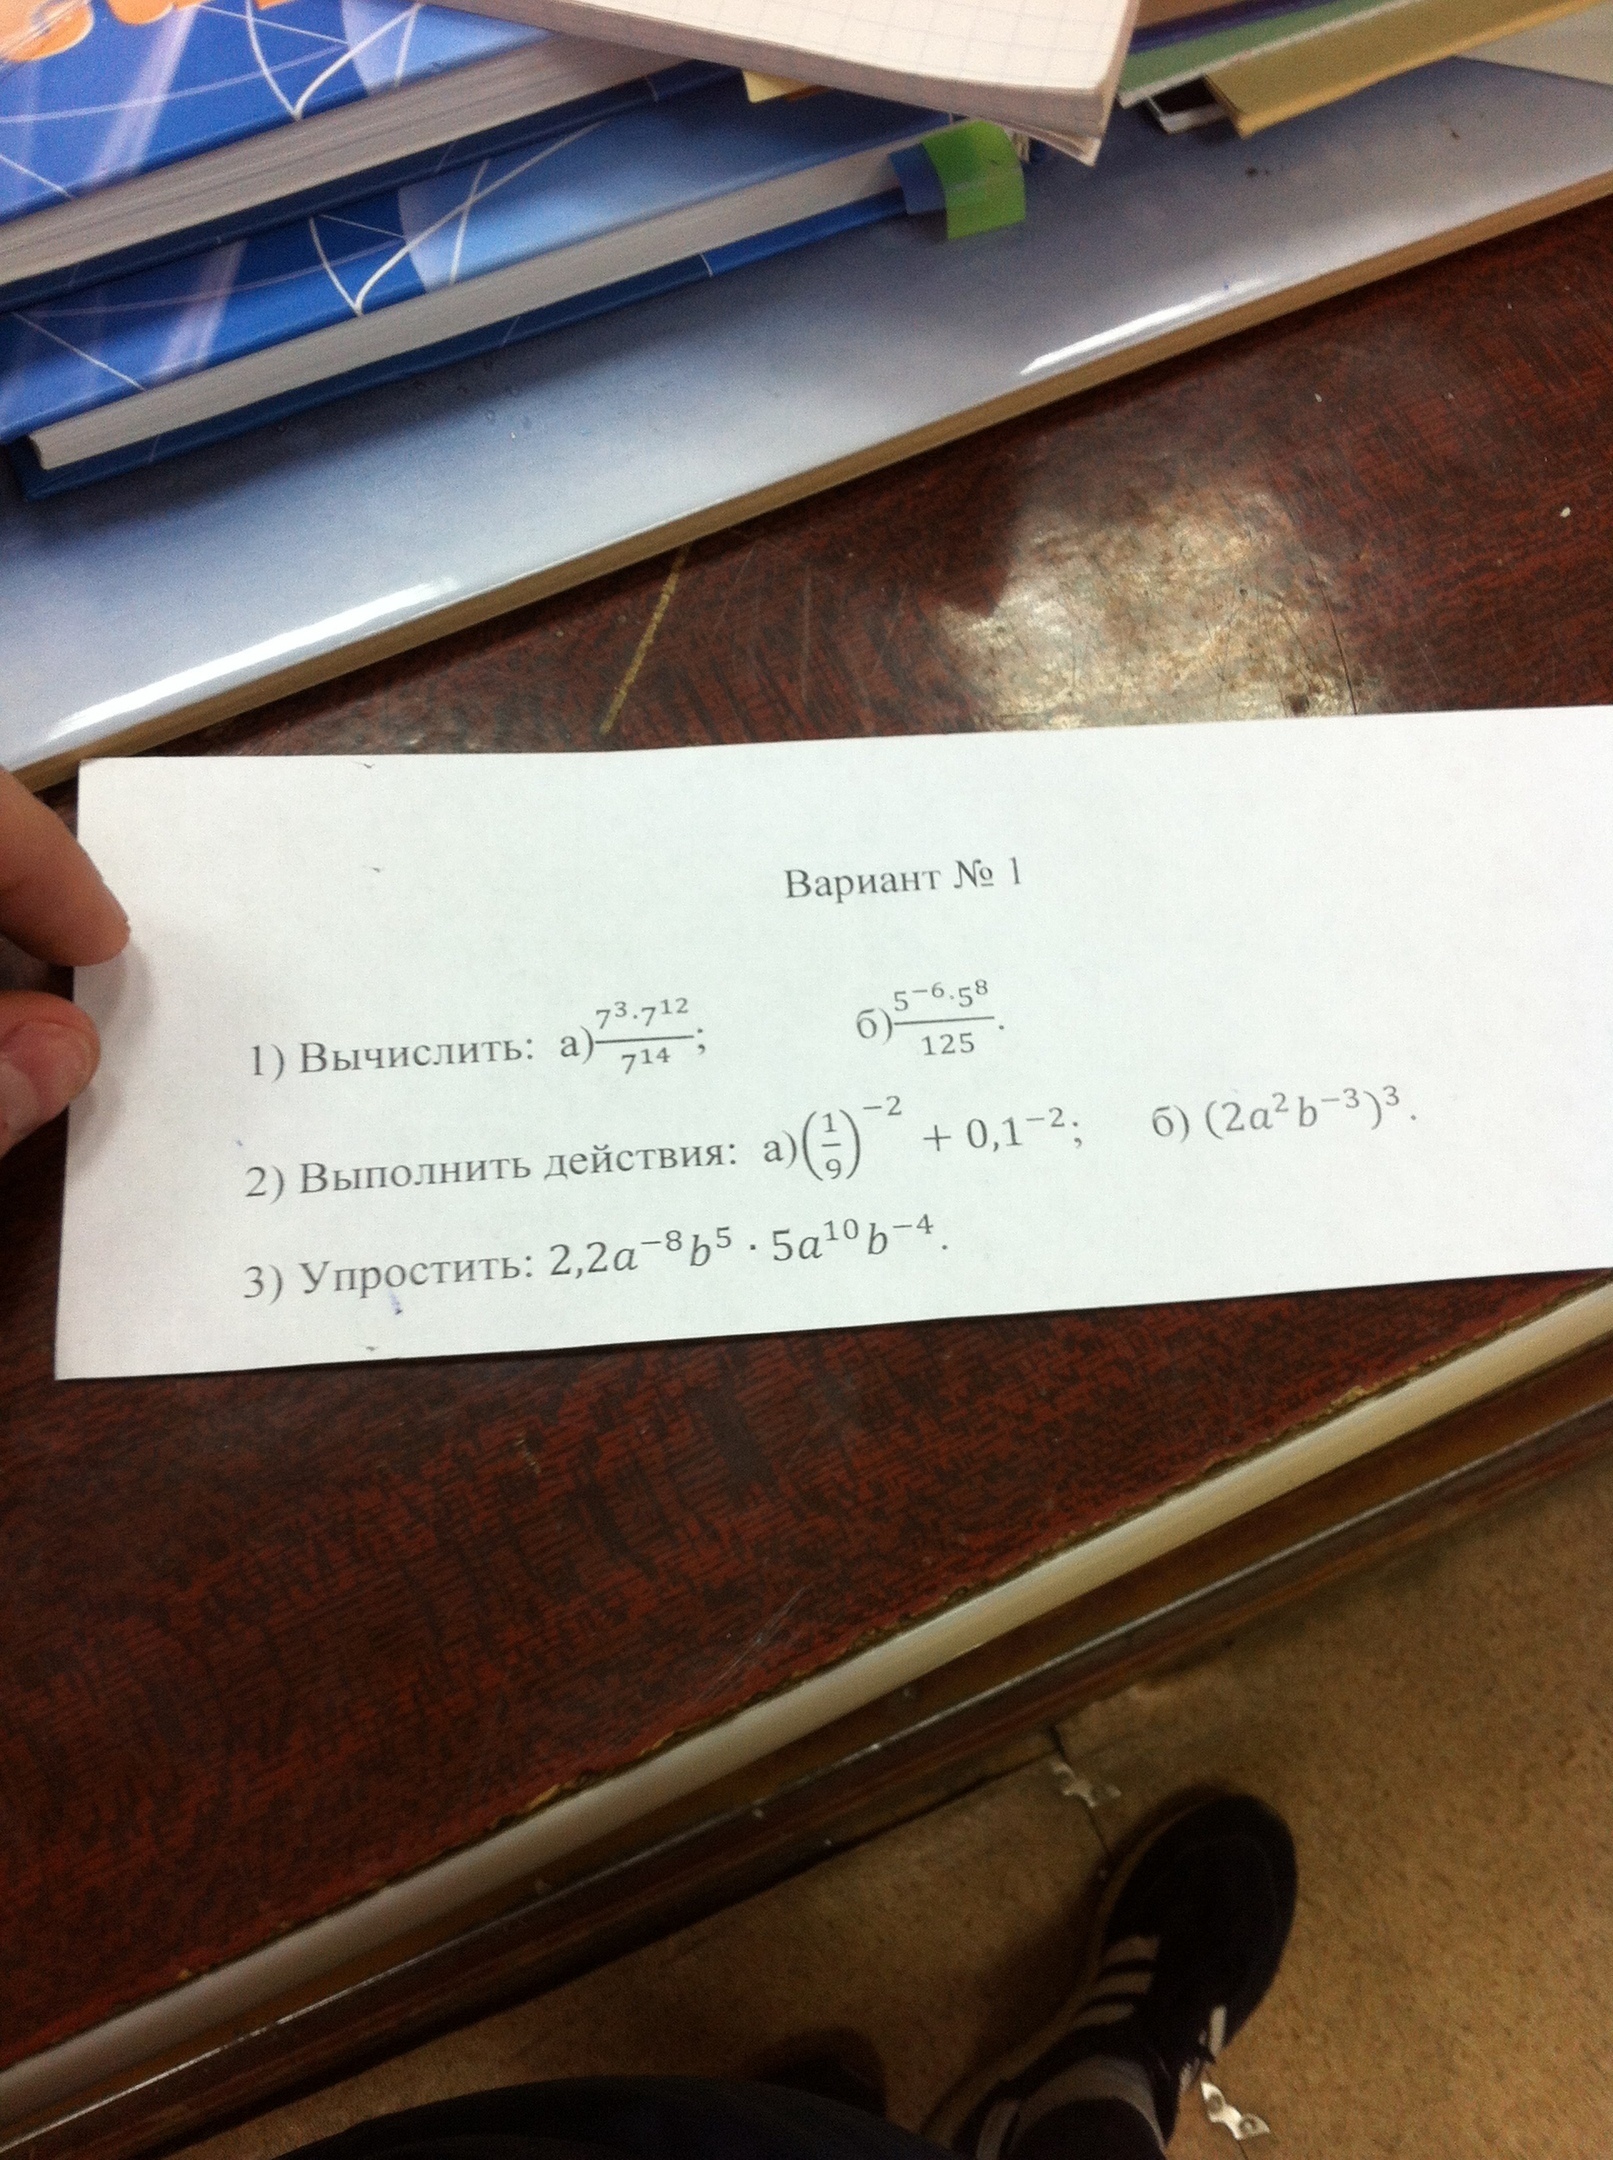 Вариант № 1
1) Вычислить: а) \frac{7^3·7^{12}}{7^{14}}; б) \frac{5^{-6}·5^8}{125}.
2) Выполнить действия: а) (\frac{1}{9})^{-2} + 0,1^{-2}; б) (2a^2b^{-3})^3.
3) Упростить: 2,2a^{-8}b^5 · 5a^{10}b^{-4}.